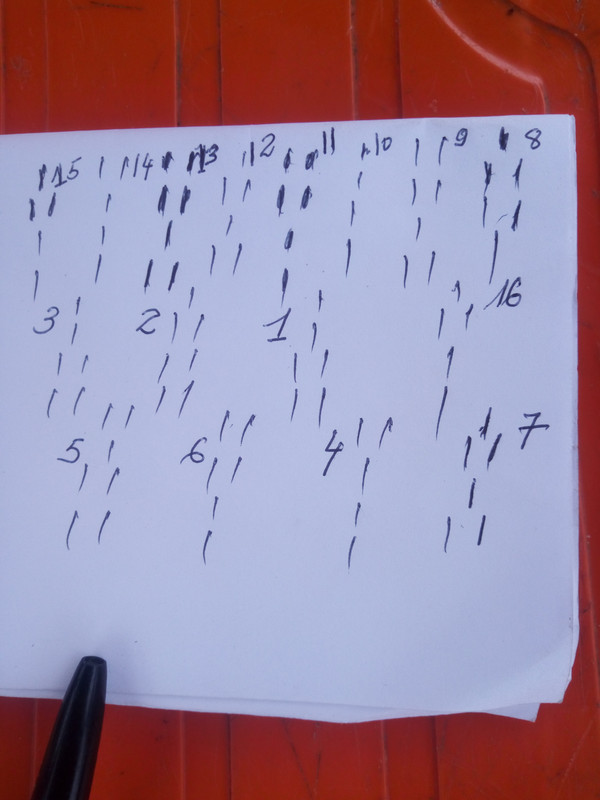 15 14 13 12 11 10 9 8
3 2 1 16
5 6 4 7